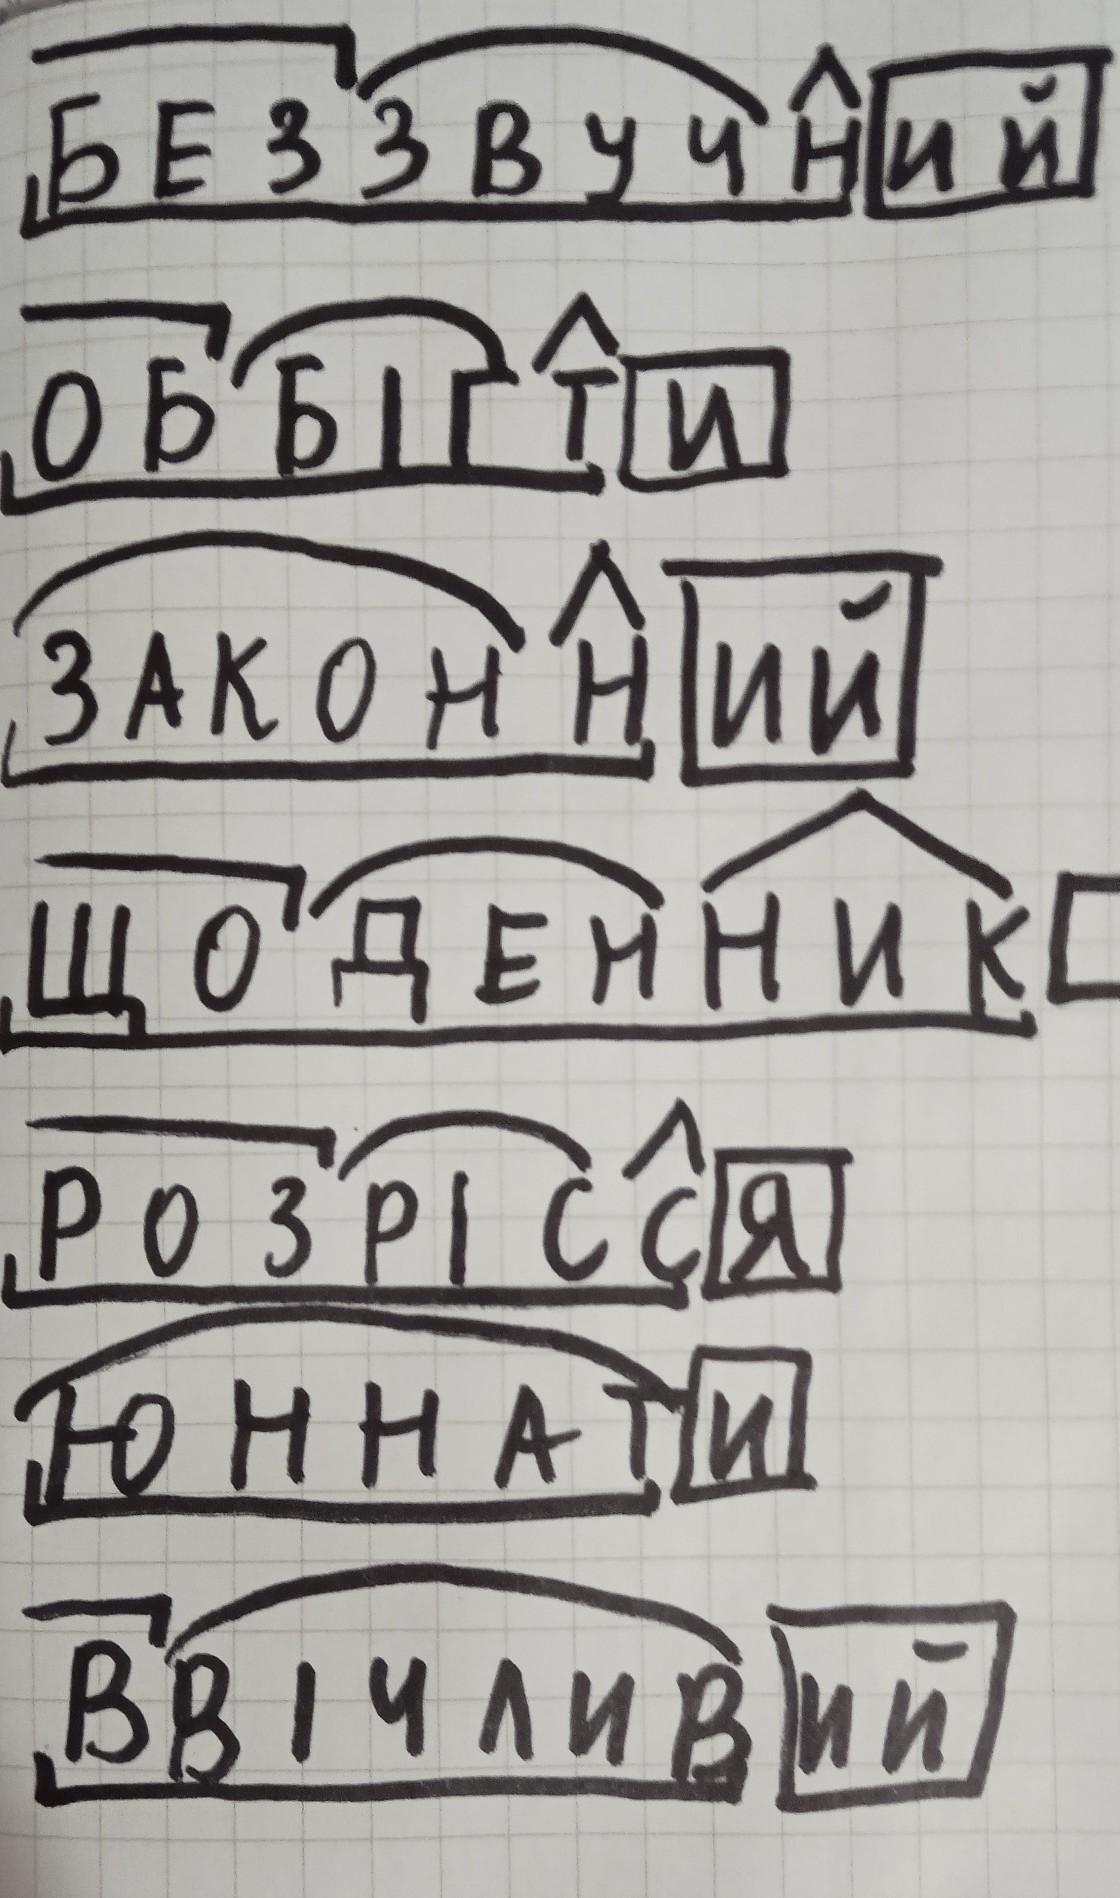 БЕЗЗВУЧНИЙ
ОББІГТИ
ЗАКОННИЙ
ЩОДЕННИК
РОЗРІССЯ
ЮННАТИ
ВВІЧЛИВИЙ